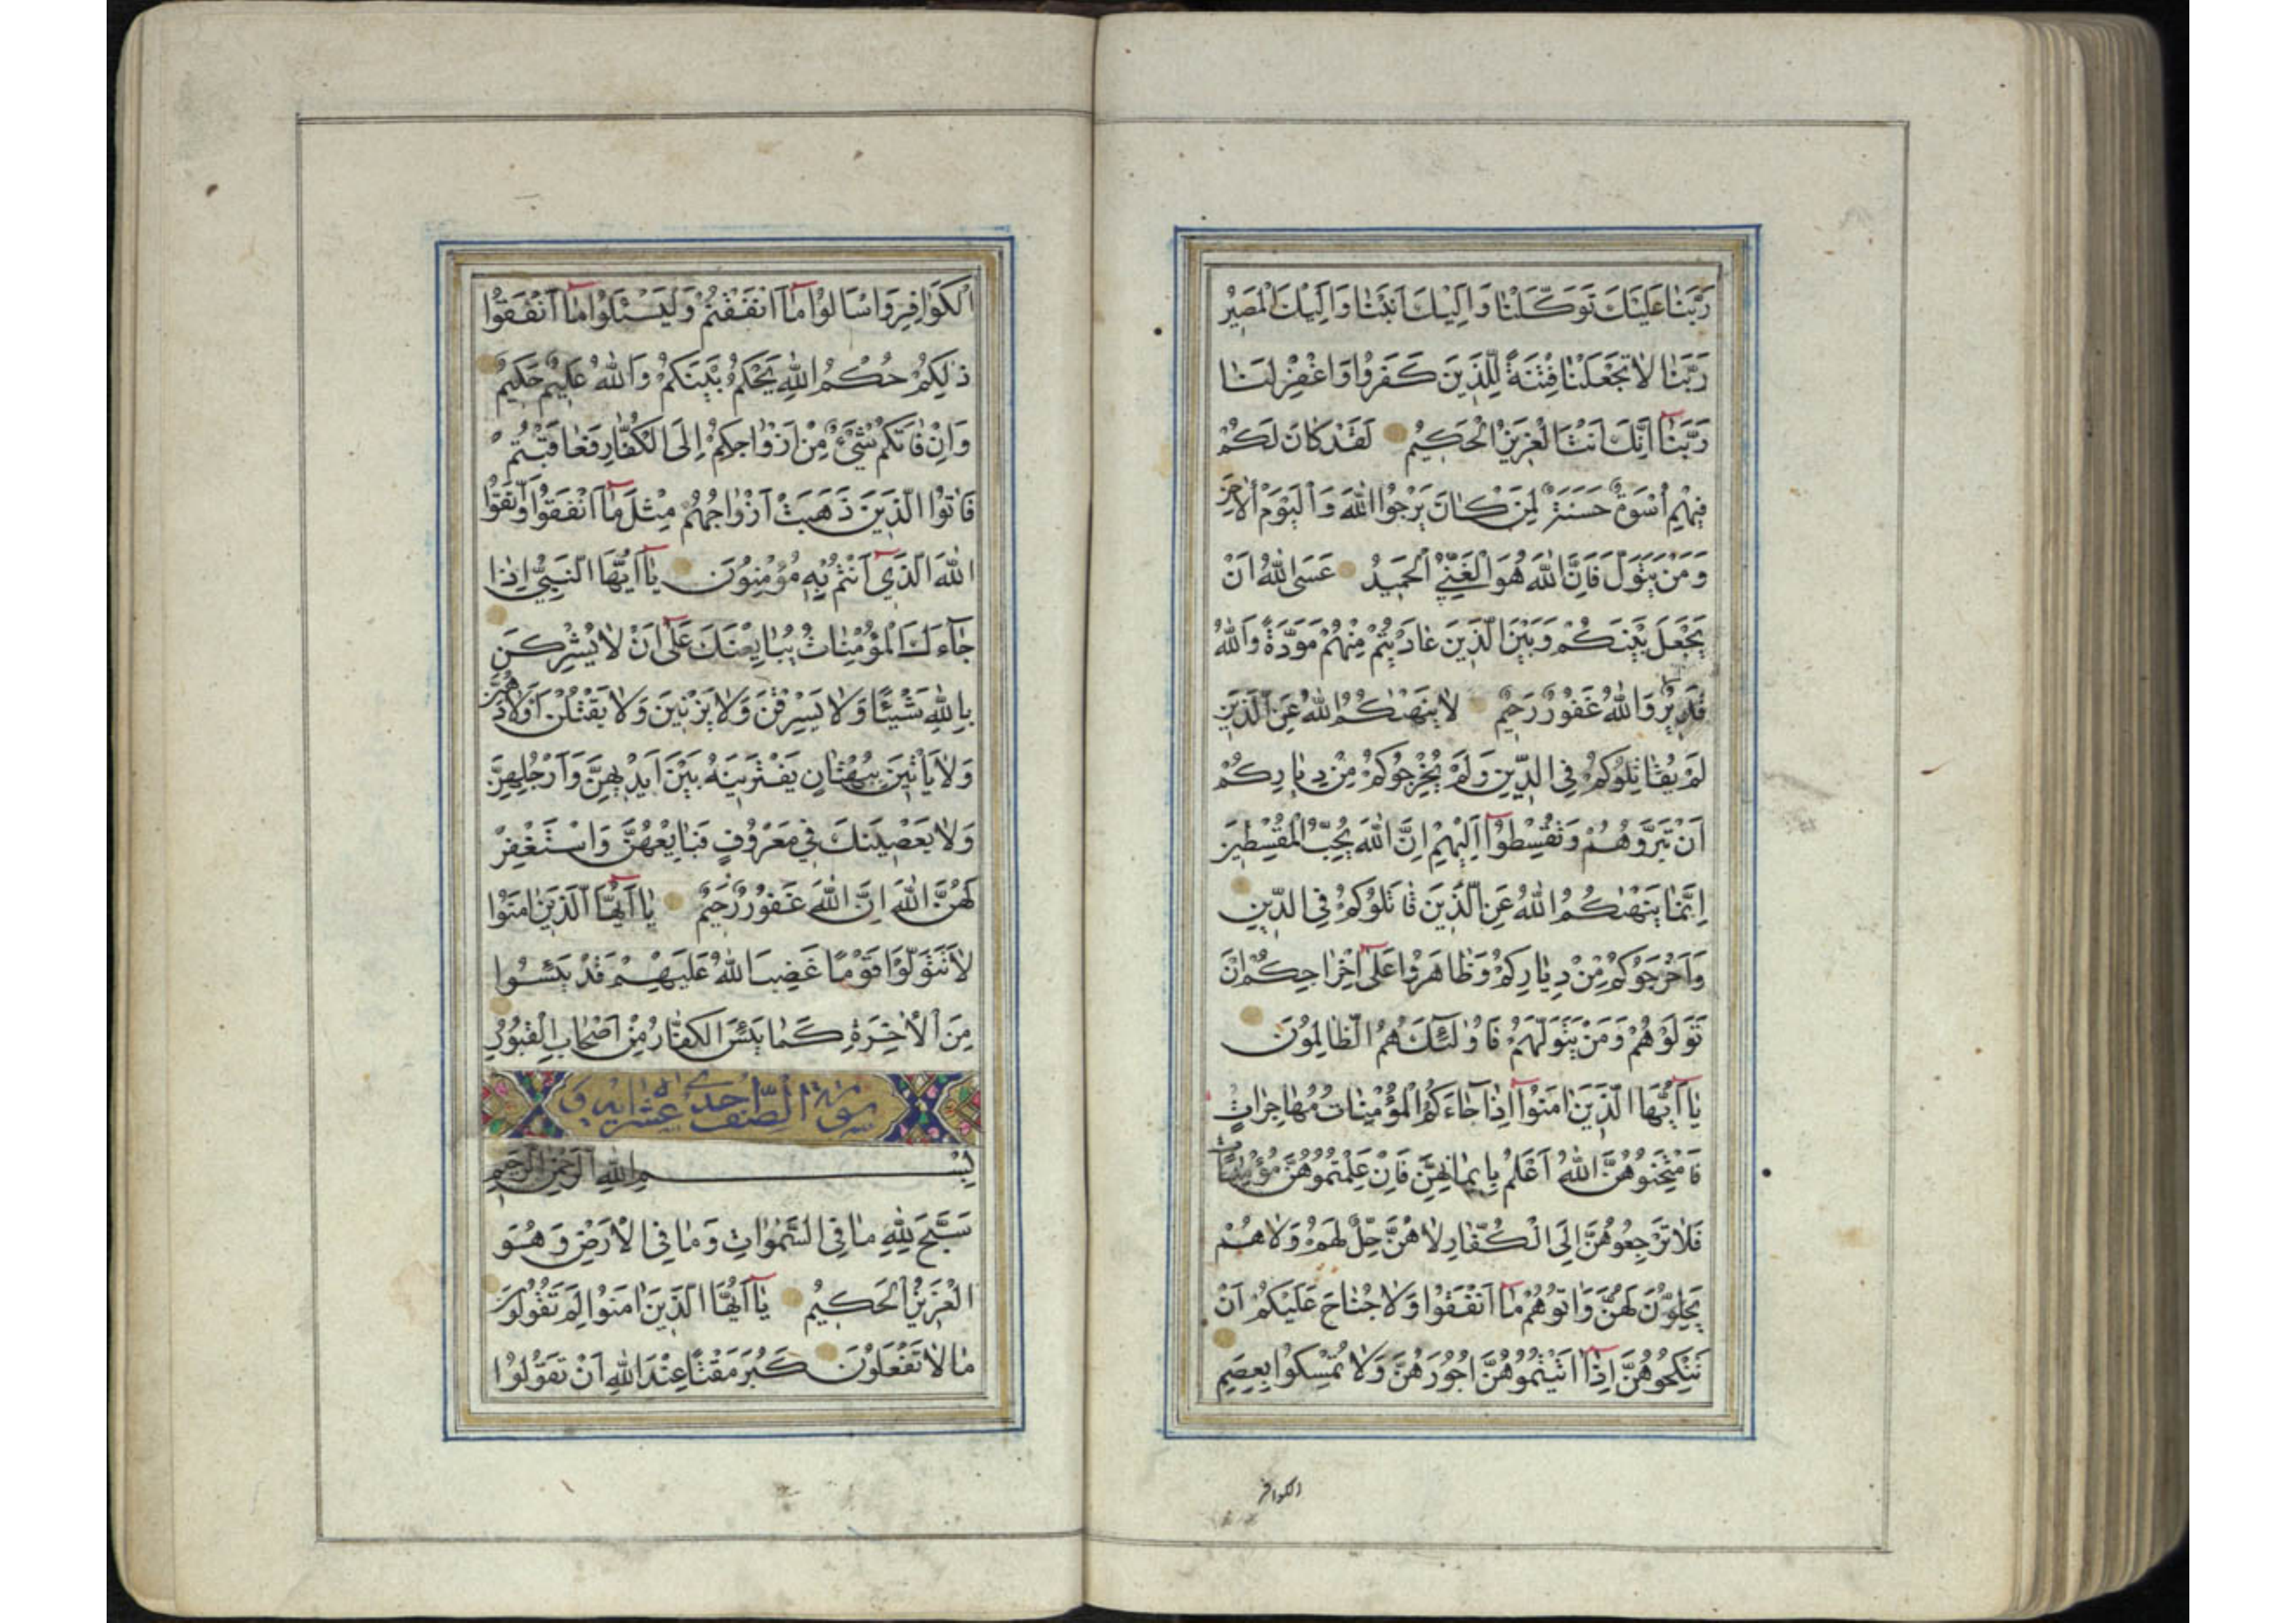 رَبَّنَا عَلَيْكَ تَوَكَّلْنَا وَاِلَيْكَ اَنَبْنَا وَاِلَيْكَ الْمَصِيرُ
رَبَّنَا لَا تَجْعَلْنَا فِتْنَةً لِلَّذِينَ كَفَرُوا وَاغْفِرْ لَنَا
رَبَّنَا اِنَّكَ اَنْتَ الْعَزِيزُ الْحَكِيمُ لَقَدْ كَانَ لَكُمْ
فِيهِمْ اُسْوَةٌ حَسَنَةٌ لِمَنْ كَانَ يَرْجُوا اللّٰهَ وَالْيَوْمَ الْاٰخِرَ
وَمَنْ يَتَوَلَّ فَاِنَّ اللّٰهَ هُوَ الْغَنِيُّ الْحَمِيدُ عَسَى اللّٰهُ اَنْ
يَجْعَلَ بَيْنَكُمْ وَبَيْنَ الَّذِينَ عَادَيْتُمْ مِنْهُمْ مَوَدَّةً وَاللّٰهُ
قَدِيرٌ وَاللّٰهُ غَفُورٌ رَحِيمٌ لَا يَنْهٰكُمُ اللّٰهُ عَنِ الَّذِينَ
لَمْ يُقَاتِلُوكُمْ فِي الدِّينِ وَلَمْ يُخْرِجُوكُمْ مِنْ دِيَارِكُمْ
اَنْ تَبَرُّوهُمْ وَتُقْسِطُوا اِلَيْهِمْ اِنَّ اللّٰهَ يُحِبُّ الْمُقْسِطِينَ
اِنَّمَا يَنْهٰكُمُ اللّٰهُ عَنِ الَّذِينَ قَاتَلُوكُمْ فِي الدِّينِ
وَاَخْرَجُوكُمْ مِنْ دِيَارِكُمْ وَظَاهَرُوا عَلٰى اِخْرَاجِكُمْ اَنْ
تَوَلَّوْهُمْ وَمَنْ يَتَوَلَّهُمْ فَاُولٰئِكَ هُمُ الظَّالِمُونَ
يَا اَيُّهَا الَّذِينَ اٰمَنُوا اِذَا جَاءَكُمُ الْمُؤْمِنَاتُ مُهَاجِرَاتٍ
فَامْتَحِنُوهُنَّ اللّٰهُ اَعْلَمُ بِاِيمَانِهِنَّ فَاِنْ عَلِمْتُمُوهُنَّ مُؤْمِنَاتٍ
فَلَا تَرْجِعُوهُنَّ اِلَى الْكُفَّارِ لَا هُنَّ حِلٌّ لَهُمْ وَلَا هُمْ
يَحِلُّونَ لَهُنَّ وَاٰتُوهُمْ مَا اَنْفَقُوا وَلَا جُنَاحَ عَلَيْكُمْ اَنْ
تَنْكِحُوهُنَّ اِذَا اٰتَيْتُمُوهُنَّ اُجُورَهُنَّ وَلَا تُمْسِكُوا بِعِصَمِ
الكوافر
الْكَوَافِرِ وَاسْاَلُوا مَا اَنْفَقْتُمْ وَلْيَسْـَٔلُوا مَا اَنْفَقُوا
ذٰلِكُمْ حُكْمُ اللّٰهِ يَحْكُمُ بَيْنَكُمْ وَاللّٰهُ عَلِيمٌ حَكِيمٌ
وَاِنْ فَاتَكُمْ شَيْءٌ مِنْ اَزْوَاجِكُمْ اِلَى الْكُفَّارِ فَعَاقَبْتُمْ
فَاٰتُوا الَّذِينَ ذَهَبَتْ اَزْوَاجُهُمْ مِثْلَ مَا اَنْفَقُوا وَاتَّقُوا
اللّٰهَ الَّذِي اَنْتُمْ بِهِ مُؤْمِنُونَ يَا اَيُّهَا النَّبِيُّ اِذَا
جَاءَكَ الْمُؤْمِنَاتُ يُبَايِعْنَكَ عَلٰى اَنْ لَا يُشْرِكْنَ
بِاللّٰهِ شَيْئًا وَلَا يَسْرِقْنَ وَلَا يَزْنِينَ وَلَا يَقْتُلْنَ اَوْلَادَهُنَّ
وَلَا يَاْتِينَ بِبُهْتَانٍ يَفْتَرِينَهُ بَيْنَ اَيْدِيهِنَّ وَاَرْجُلِهِنَّ
وَلَا يَعْصِينَكَ فِي مَعْرُوفٍ فَبَايِعْهُنَّ وَاسْتَغْفِرْ
لَهُنَّ اللّٰهَ اِنَّ اللّٰهَ غَفُورٌ رَحِيمٌ يَا اَيُّهَا الَّذِينَ اٰمَنُوا
لَا تَتَوَلَّوْا قَوْمًا غَضِبَ اللّٰهُ عَلَيْهِمْ قَدْ يَئِسُوا
مِنَ الْاٰخِرَةِ كَمَا يَئِسَ الْكُفَّارُ مِنْ اَصْحَابِ الْقُبُورِ
سورة الصف احدى عشر اية
بِسْمِ اللّٰهِ الرَّحْمٰنِ الرَّحِيمِ
سَبَّحَ لِلّٰهِ مَا فِي السَّمٰوَاتِ وَمَا فِي الْاَرْضِ وَهُوَ
الْعَزِيزُ الْحَكِيمُ يَا اَيُّهَا الَّذِينَ اٰمَنُوا لِمَ تَقُولُونَ
مَا لَا تَفْعَلُونَ كَبُرَ مَقْتًا عِنْدَ اللّٰهِ اَنْ تَقُولُوا